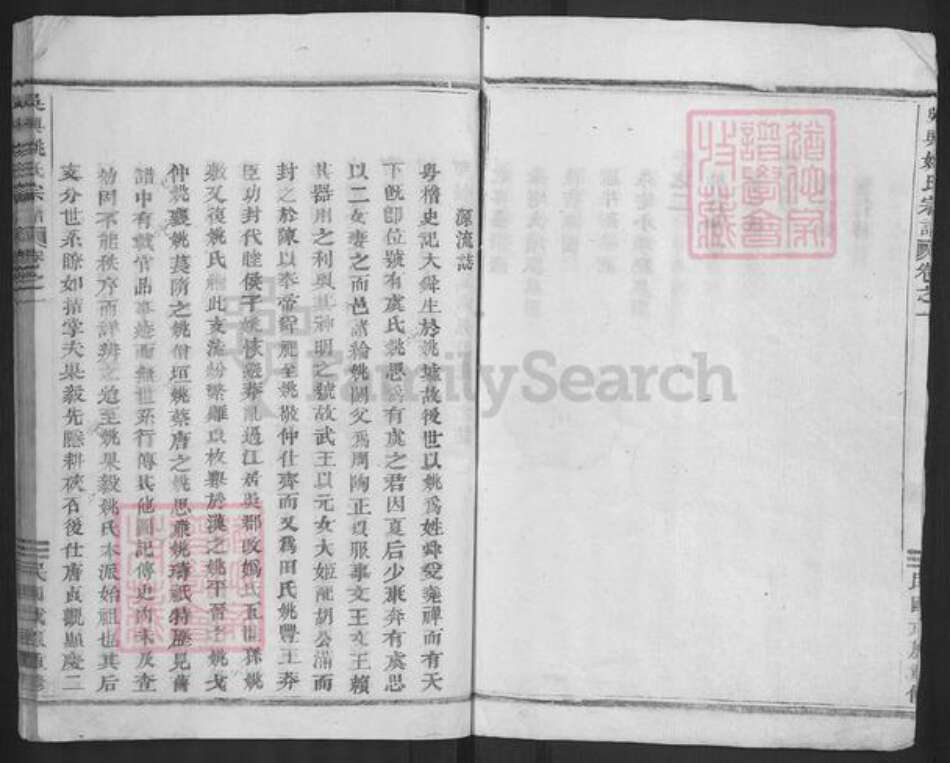 吳興姚氏宗譜 卷之一
源流誌
粤稽史記大舜生於姚墟故後世以姚爲姓舜受堯禪而有天
下旣卽位號有虞氏姚思爲有虞之君因夏后少康奔有虞思
以二女妻之而邑諸綸姚閼父爲周陶正以服事文王文王賴
其器用之利與其神明之號故武王以元女大姬配胡公滿而
封之於陳以奉帝舜祀至姚敬仲仕齊而又爲田氏姚豐王莽
臣功封代睦侯子姚恢避莽亂過江居吳郡改嬀氏五世孫姚
敷又復姚氏繼此支派紛繁難以枚舉於漢之姚平晉之姚弋
仲姚襄姚萇隋之姚僧垣姚察唐之姚思廉姚璹祇特歷見舊
譜中有載官品事迹而無世系行傳其他圖記傳史尚未及查
勢固不能秩序而詳辨之迨至姚果毅姚氏本派始祖也其後
支分世系瞭如指掌夫果毅先隱耕硤石後仕唐貞觀顯慶二
吳興姚氏宗譜 卷之一
FamilySearch